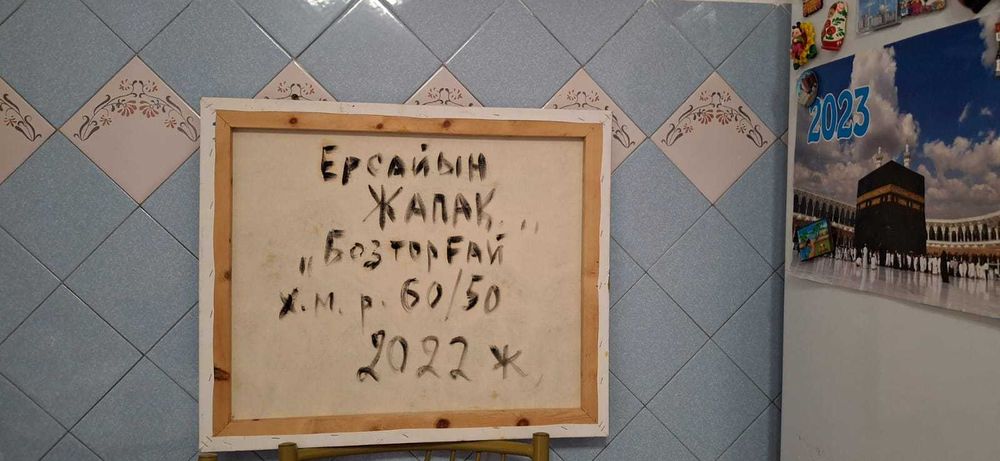 Ерсайын
Жапақ.
„Бозторғай"
х.м. р. 60/50
2022 ж
2023